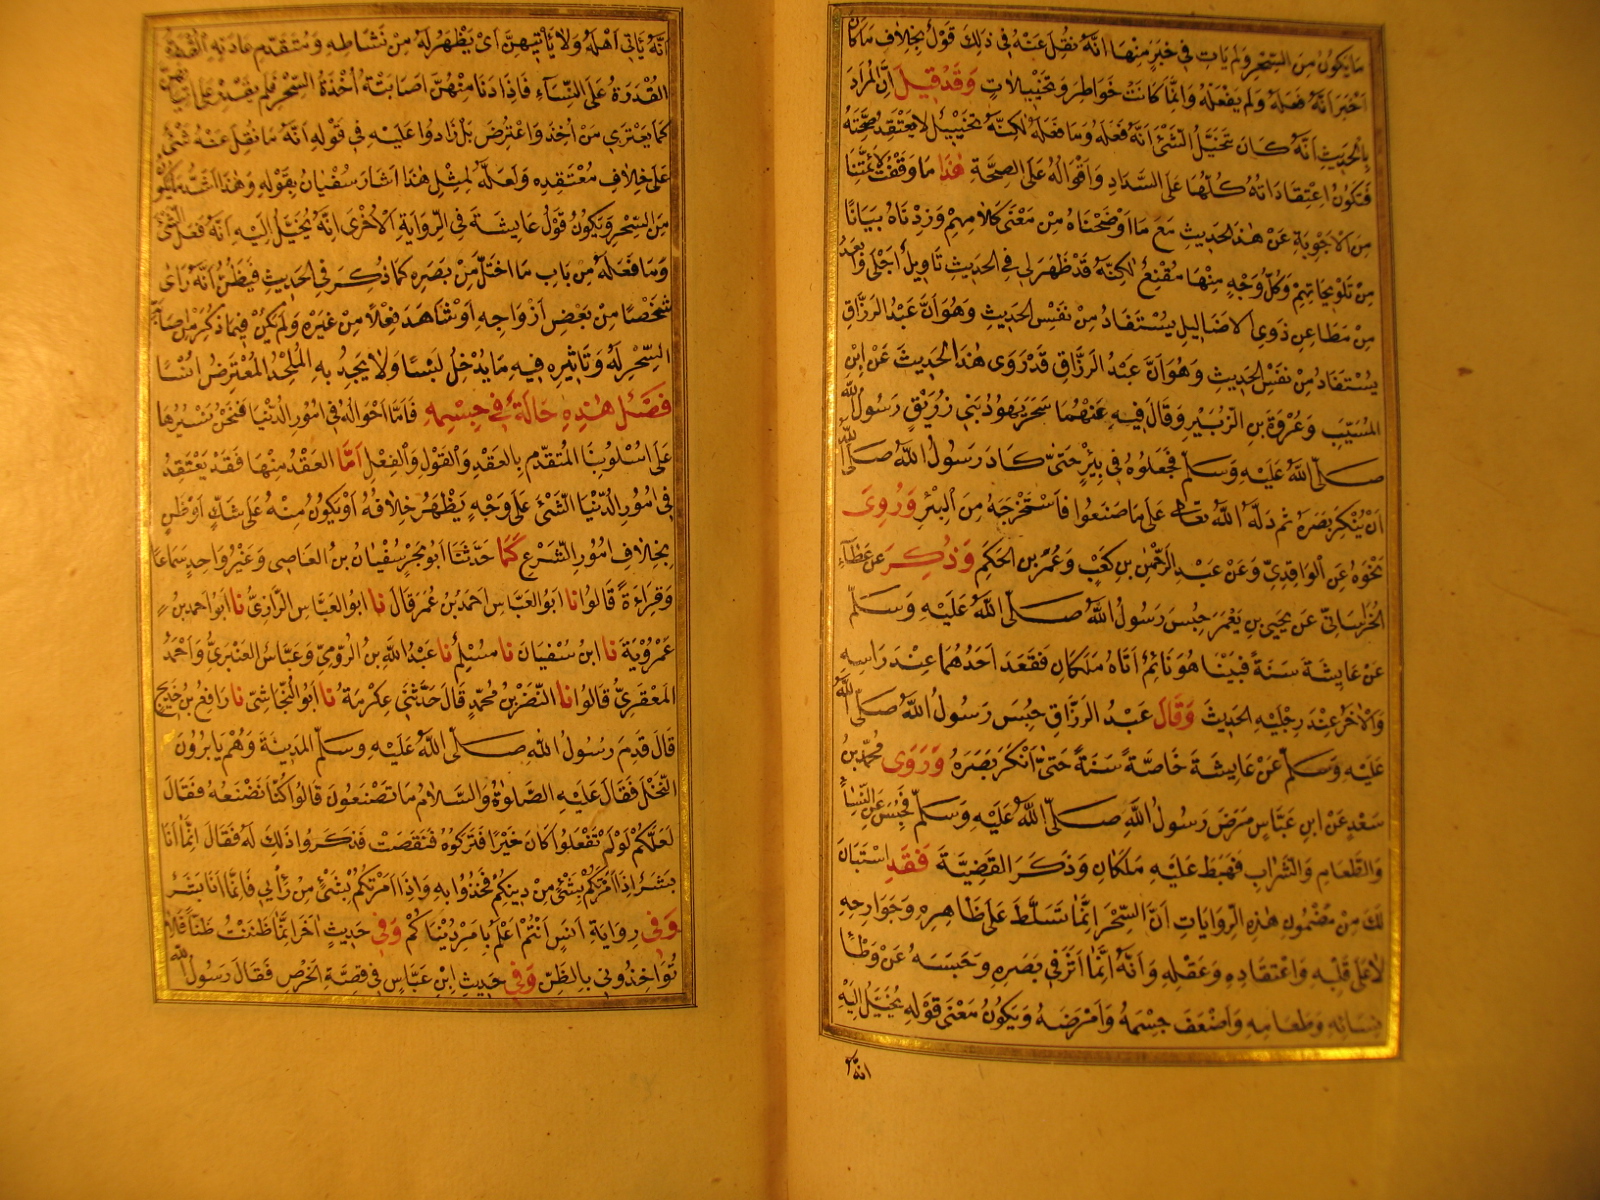 ما يكون من السحر ولم يات في خبر منها انه نقل عنه في ذلك قول بخلاف ما كان
اخبر انه فعله ولم يفعله وانما كانت خواطر وتخييلات وقد قيل ان المراد
بالحديث انه كان يتخيل الشئ انه فعله وما فعله لكنه تخييل لا يعتقد صحته
فتكون اعتقاداته كلها على السداد واقواله على الصحة هذا ما وقفت لائمتنا
من الاجوبة عن هذا الحديث مع ما اوضحناه من معنى كلامهم وزدناه بيانا
من تلويحاتهم وكل وجه منها مقنع لكنه قد ظهر لي في الحديث تاويل اجلى وابعد
من مطاعن ذوى الاضاليل يستفاد من نفس الحديث وهو ان عبد الرزاق
يستفاد من نفس الحديث وهو ان عبد الرزاق قد روى هذا الحديث عن ابن
المسيب وعروة بن الزبير وقال فيه عنهما سحر يهود بني زريق رسول الله
صلى الله عليه وسلم فجعلوه في بئر حتى كاد رسول الله صلى الله
ان ينكر بصره ثم دله الله تعالى على ما صنعوا فاستخرجه من البئر وروى
نحوه عن الواقدي وعن عبد الرحمن بن كعب وعمر بن الحكم وذكر عن عطاء
الخراساني عن يحيى بن يعمر حبس رسول الله صلى الله عليه وسلم
عن عايشة سنة فبينا هو نائم اتاه ملكان فقعد احدهما عند راسه
والاخر عند رجليه الحديث وقال عبد الرزاق حبس رسول الله صلى الله
عليه وسلم عن عايشة خاصة سنة حتى انكر بصره وروى محمد بن
سعد عن ابن عباس مرض رسول الله صلى الله عليه وسلم فحبس عن النساء
والطعام والشراب فهبط عليه ملكان وذكر القضية فقد استبان
لك من مضمون هذه الروايات ان السحر انما تسلط على ظاهره وجوارحه
لا على قلبه واعتقاده وعقله وانه انما اثر في بصره وحبسه عن وطئ
نسائه وطعامه واضعف جسمه وامرضه ويكون معنى قوله يخيل اليه
انه
انه ياتي اهله ولا ياتيهن اى يظهر له من نشاطه ومتقدم عادته القدرة
القدرة على النساء فاذا دنا منهن اصابته اخذة السحر فلم يقدر على اتيانهن
كما يعتري من اخذ واعترض بل زادوا عليه في قوله انه ما نقل عنه شئ
على خلاف معتقده ولعله لمثل هذا اشار سفيان بقوله وهذا اشد ما يكون
من السحر ويكون قول عايشة في الرواية الاخرى انه يخيل اليه انه فعل الشئ
وما فعله من باب ما اختل من بصره كما ذكر في الحديث فيظن انه راى
شخصا من بعض ازواجه او شاهد فعلا من غيره ولم يكن فيما ذكر من اصابة
السحر له وتاثيره فيه ما يدخل لبسا ولا يجد به الملحد المعترض انسا
فصل هذه حالة في جسمه فاما احواله في امور الدنيا فنحن نسيرها
على اسلوبنا المتقدم بالعقد والقول والفعل اما العقد منها فقد يعتقد
في امور الدنيا الشئ على وجه يظهر خلافه او يكون منه على شك او ظن
بخلاف امور الشرع كما حدثنا ابو بحر سفيان بن العاصى وغير واحد سماعا
وقراءة قالوا نا ابو العباس احمد بن عمر قال نا ابو العباس الرازي نا ابو احمد بن
عمروية نا ابن سفيان نا مسلم نا عبد الله بن الرومي وعباس العنبري واحمد
المعقري قالوا نا النضر بن محمد قال حدثني عكرمة نا ابو النجاشي نا رافع بن خديج
قال قدم رسول الله صلى الله عليه وسلم المدينة وهم يابرون
النخل فقال عليه الصلوة والسلام ما تصنعون قالوا كنا نصنعه فقال
لعلكم لو لم تفعلوا كان خيرا فتركوه فنقصت فذكروا ذلك له فقال انما انا
بشر اذا امرتكم بشئ من دينكم فخذوا به واذا امرتكم بشئ من رأيي فانما انا بشر
وفي رواية انس انتم اعلم بامر دنياكم وفي حديث اخر انما ظننت ظنا فلا
تواخذوني بالظن وفي حديث ابن عباس في قصة الخرص فقال رسول الله